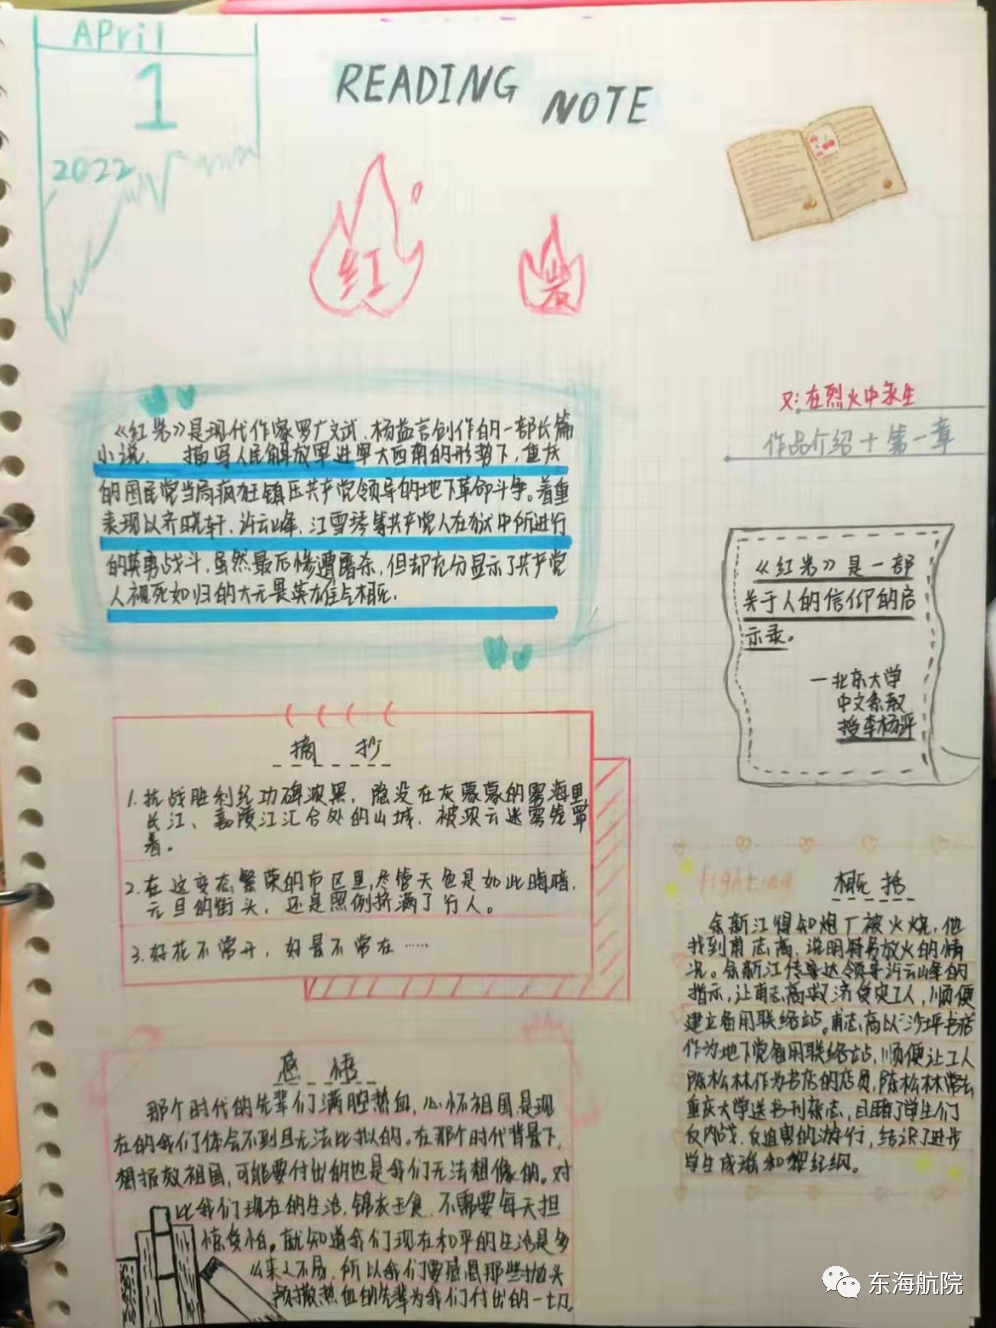 APril
1
2022
READING NOTE
红 岩
又:在烈火中永生
作品介绍+第一章
《红岩》是现代作家罗广斌、杨益言创作的一部长篇
小说。 描写人民解放军进军大西南的形势下,重庆
的国民党当局疯狂镇压共产党领导的地下革命斗争。着重
表现以齐晓轩、许云峰、江雪琴等共产党人在狱中所进行
的英勇战斗,虽然最后惨遭屠杀,但却充分显示了共产党
人视死如归的大无畏英雄气概。
《红岩》是一部
关于人的信仰的启
示录。
—北京大学
中文系教
授李杨评
摘 抄
1.抗战胜利纪功碑波黑,隐没在灰蒙蒙的雾海里,
长江、嘉陵江汇合处的山城,被浓云迷雾笼罩
着。
2.在这变态繁荣的市区里,尽管天色是如此晦暗,
元旦的街头,还是照例挤满了行人。
3.好花不常开,好景不常在……
fighting
概 括
余新江得知炮厂被火烧,他
找到甫志高,说明特务放火的情
况。余新江传达领导许云峰的
指示,让甫志高救济受灾工人,顺便
建立备用联络站。甫志高以沙坪书店
作为地下党备用联络站,顺便让工人
陈松林作为书店的店员,陈松林常去
重庆大学送书刊杂志,目睹了学生们
反内战,反迫害的游行,结识了进步
学生成瑶和黎纪纲。
感 悟
那个时代的先辈们满腔热血,心怀祖国是现
在的我们体会不到且无法比拟的。在那个时代背景下,
想报效祖国,可能要付出的也是我们无法想像的。对
比我们现在的生活,锦衣玉食,不需要每天担
惊受怕。就知道我们现在和平的生活是多
么来之不易,所以我们要感恩那些抛头
颅撒热血的先辈为我们付出的一切
东海航院